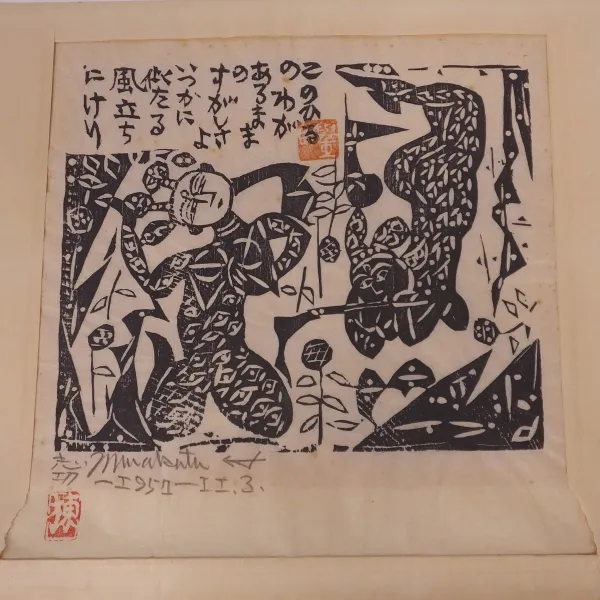 このひる
のわが
あるまま
の
すがしさ
よ
いつかに
似たる
風立ち
にけり
志功 Munakata
-1957-11.3.
棟